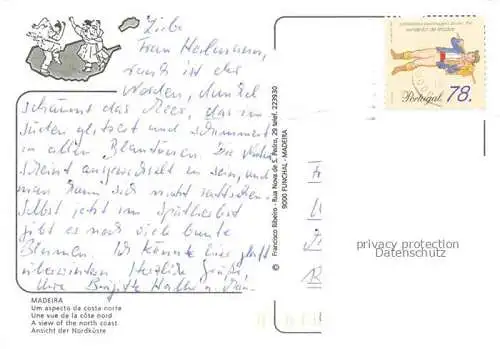 Liebe
Frau Heilmann,
rauh ist der
Norden, dunkel
schäumt das Meer, das im
Süden glitzert und schimmert
in allen Blautönen. Die Natur
scheint ausgewechselt zu sein, und
man kann sich nicht sattsehen.
Selbst jetzt im Spätherbst
gibt es noch viele bunte
Blumen. Ich könnte hier glatt
überwintern. Herzliche Grüße,
Ihre Brigitte
MADEIRA
Um aspecto da costa norte
Une vue de la côte nord
A view of the north coast
Ansicht der Nordküste
© Francisco Ribeiro - Rua Nova de S. Pedro, 29 telef. 223930
9000 FUNCHAL - MADEIRA
Portugal 78.
privacy protection
Datenschutz